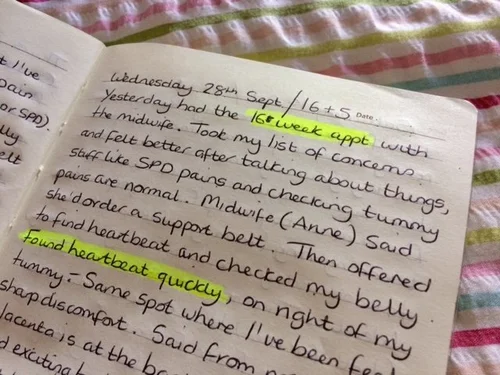 t I've
pain
or SPD).
lly
elt
Date
Wednesday 28th Sept. / 16+5
Yesterday had the 16 week appt with
the midwife. Took my list of concerns
and felt better after talking about things,
stuff like SPD pains and checking tummy
pains are normal. Midwife (Anne) said
she'd order a support belt. Then offered
to find heartbeat and checked my belly.
Found heartbeat quickly, on right of my
tummy - Same spot where I've been feel
sharp discomfort. Said from
lacenta is at the
d exciting